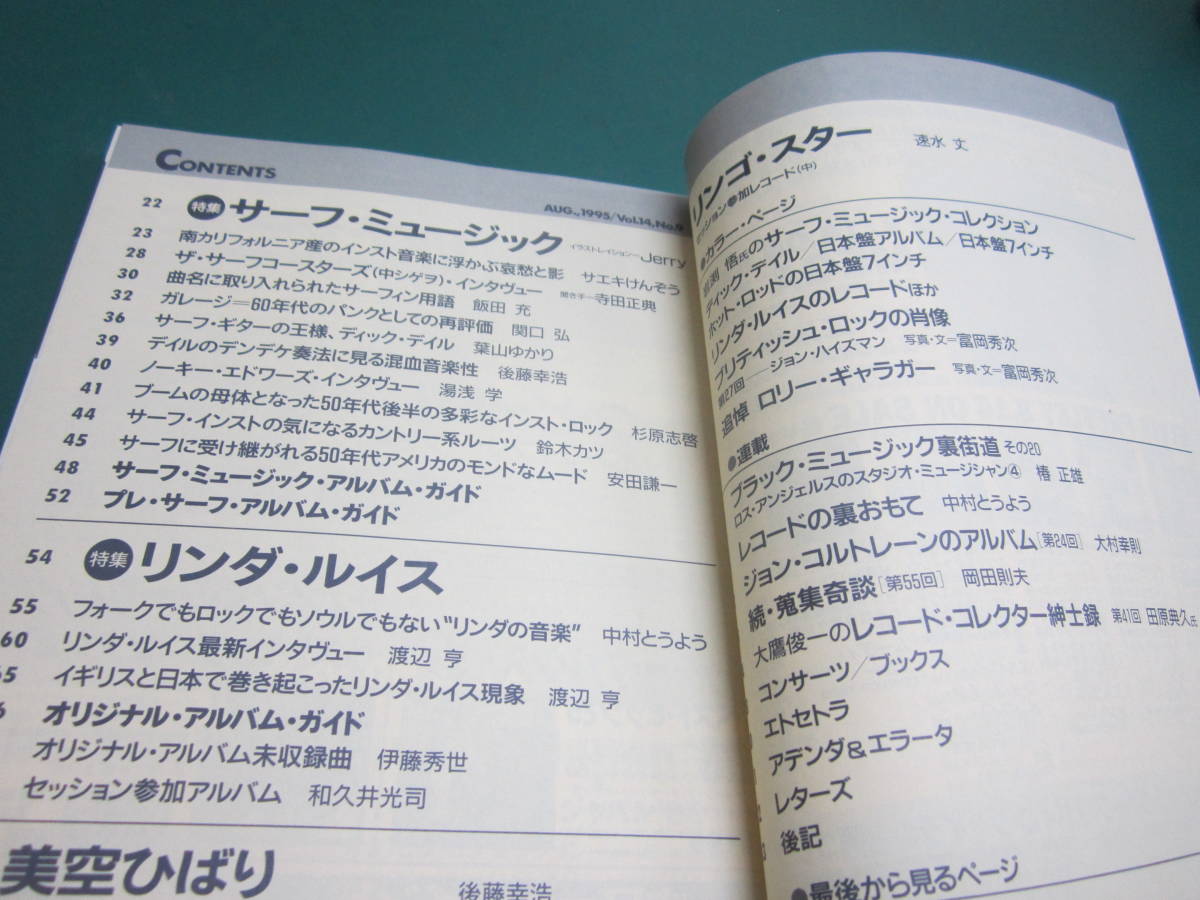 CONTENTS
AUG.,1995/Vol.14,No.9
22 特集 サーフ・ミュージック イラストレイション＝Jerry
23 南カリフォルニア産のインスト音楽に浮かぶ哀愁と影 サエキけんぞう
28 ザ・サーフコースターズ(中シゲヲ)・インタヴュー 聞き手＝寺田正典
30 曲名に取り入れられたサーフィン用語 飯田 充
32 ガレージ＝60年代のパンクとしての再評価 関口 弘
36 サーフ・ギターの王様、ディック・デイル 葉山ゆかり
39 デイルのデンデケ奏法に見る混血音楽性 後藤幸浩
40 ノーキー・エドワーズ・インタヴュー 湯浅 学
41 ブームの母体となった50年代後半の多彩なインスト・ロック 杉原志啓
44 サーフ・インストの気になるカントリー系ルーツ 鈴木カツ
45 サーフに受け継がれる50年代アメリカのモンドなムード 安田謙一
48 サーフ・ミュージック・アルバム・ガイド
52 プレ・サーフ・アルバム・ガイド
54 特集 リンダ・ルイス
55 フォークでもロックでもソウルでもない“リンダの音楽” 中村とうよう
60 リンダ・ルイス最新インタヴュー 渡辺 亨
65 イギリスと日本で巻き起こったリンダ・ルイス現象 渡辺 亨
6 オリジナル・アルバム・ガイド
オリジナル・アルバム未収録曲 伊藤秀世
セッション参加アルバム 和久井光司
美空ひばり 後藤幸浩
リンゴ・スター 速水 丈
セッション参加レコード(中)
●カラー・ページ
悟氏のサーフ・ミュージック・コレクション
ディック・デイル／日本盤アルバム／日本盤7インチ
ホット・ロッドの日本盤7インチ
リンダ・ルイスのレコードほか
ブリティッシュ・ロックの肖像
第27回──ジョン・ハイズマン 写真・文＝富岡秀次
追悼 ロリー・ギャラガー 写真・文＝富岡秀次
●連載
ブラック・ミュージック裏街道 その20
ロス・アンジェルスのスタジオ・ミュージシャン④ 椿 正雄
レコードの裏おもて 中村とうよう
ジョン・コルトレーンのアルバム[第24回] 大村幸則
続・蒐集奇談[第55回] 岡田則夫
大鷹俊一のレコード・コレクター紳士録 第41回 田原典久氏
コンサーツ／ブックス
エトセトラ
アデンダ&エラータ
レターズ
後記
●最後から見るページ